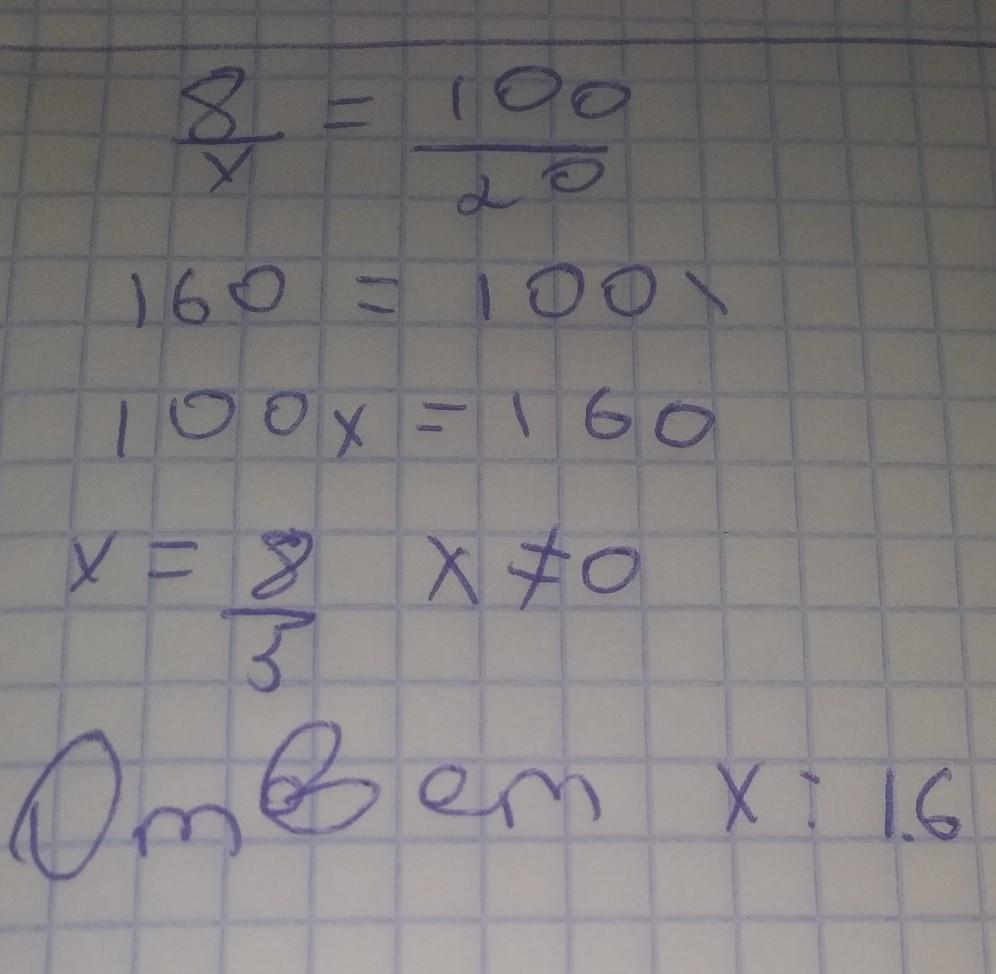 8/x = 100/20
160 = 100x
100x = 160
x = 8/5 x ≠ 0
Ответ x: 1.6